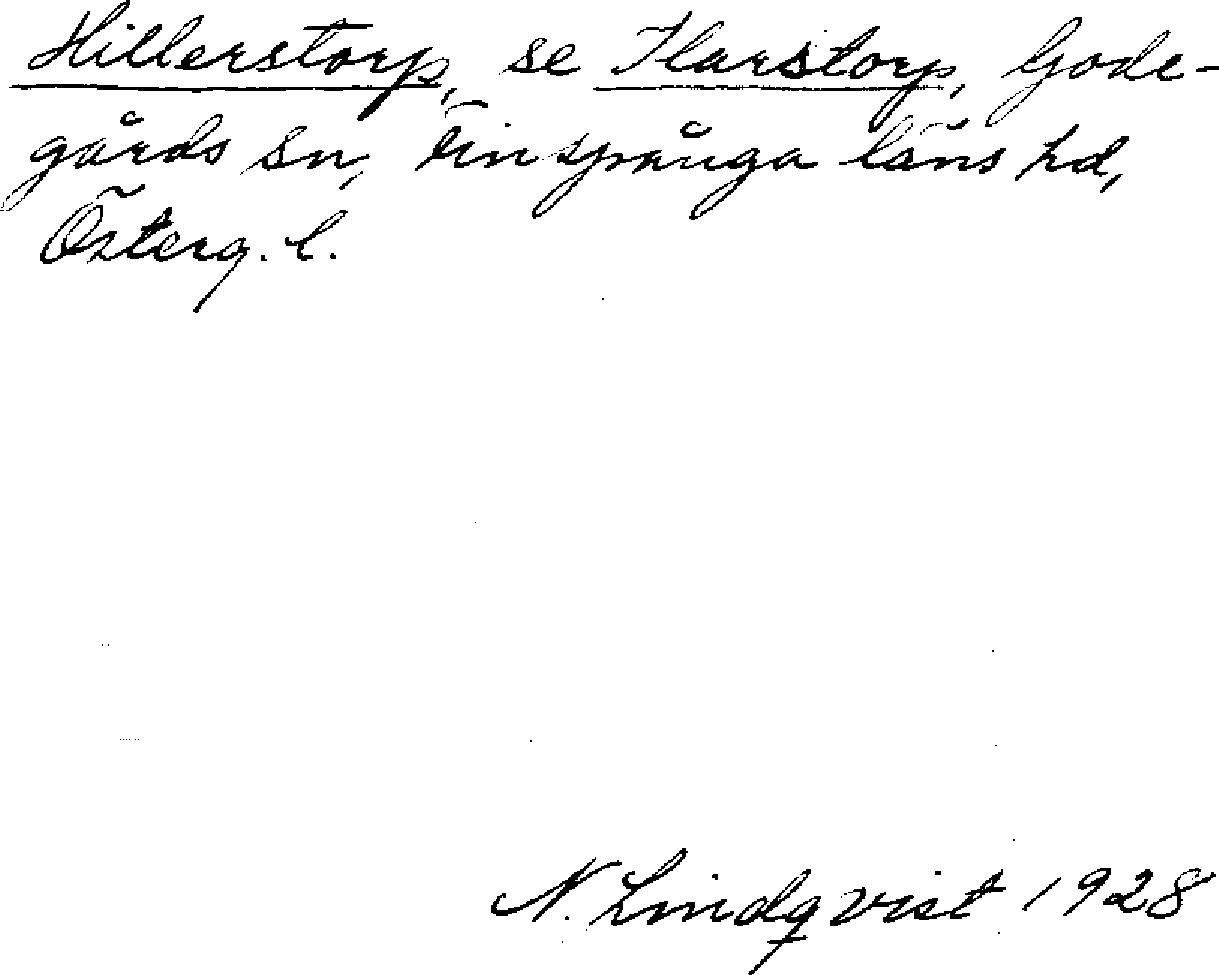 Hillerstorp, se Harstorp, Gode-
gårds sn, Finspånga läns hd,
Österg. l.
N. Lindqvist 1928